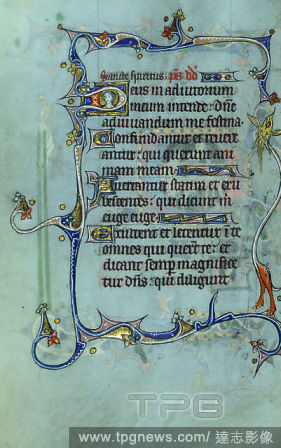 Gran de spiritus. ps dd
Deus in adiutorium
meum intende: dñe
adiuvandum me festina
Confundantur et revere
antur: qui querunt ani
mam meam.
Avertantur statim et eru
bescentes: qui dicunt m̄
euge euge.
Exultent et letentur ī te
omnes qui querūt te: et
dicant semp magnifice
tur dn̄s: qui diligunt
TPG
www.tpgnews.com/達志影像